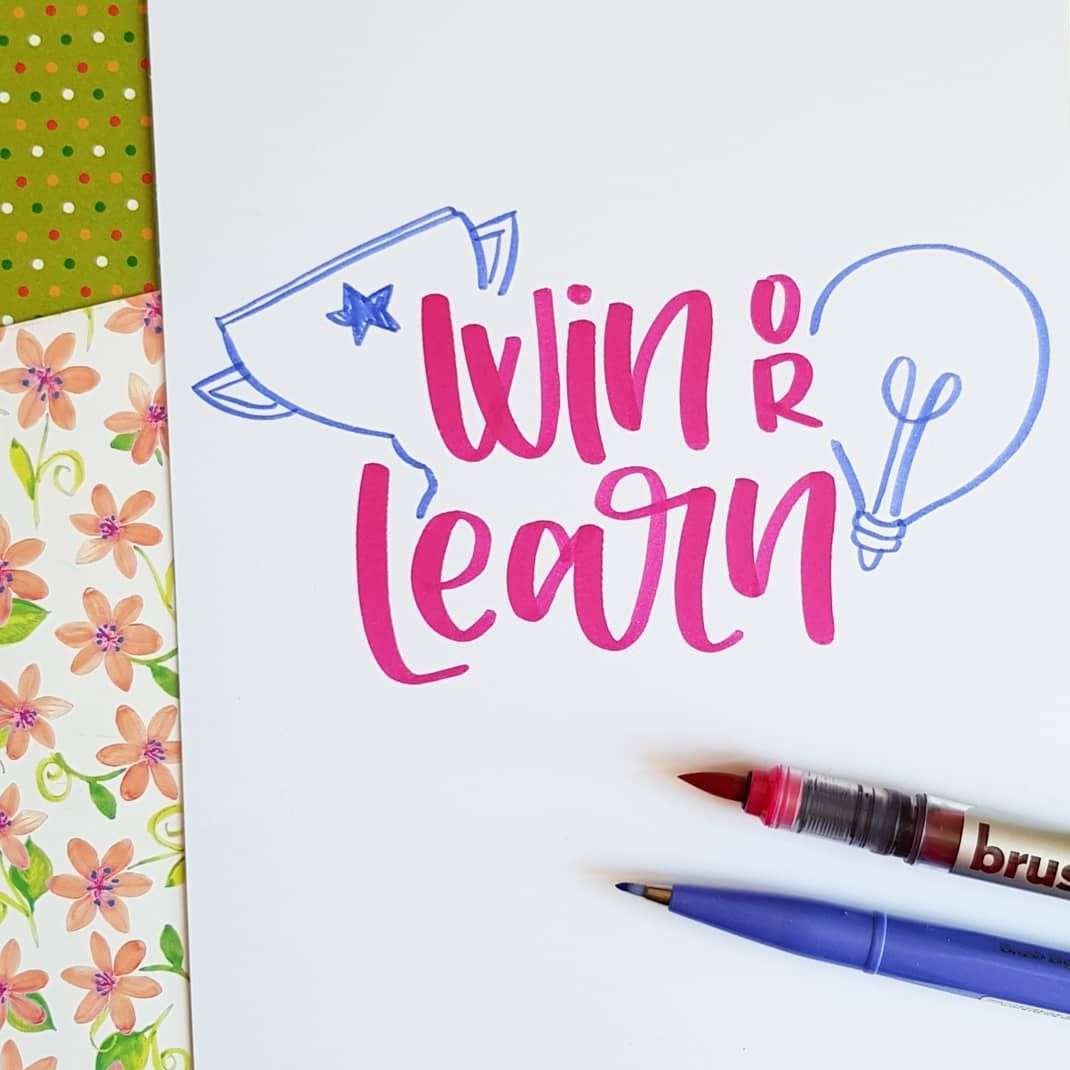 Win OR
Learn
brus